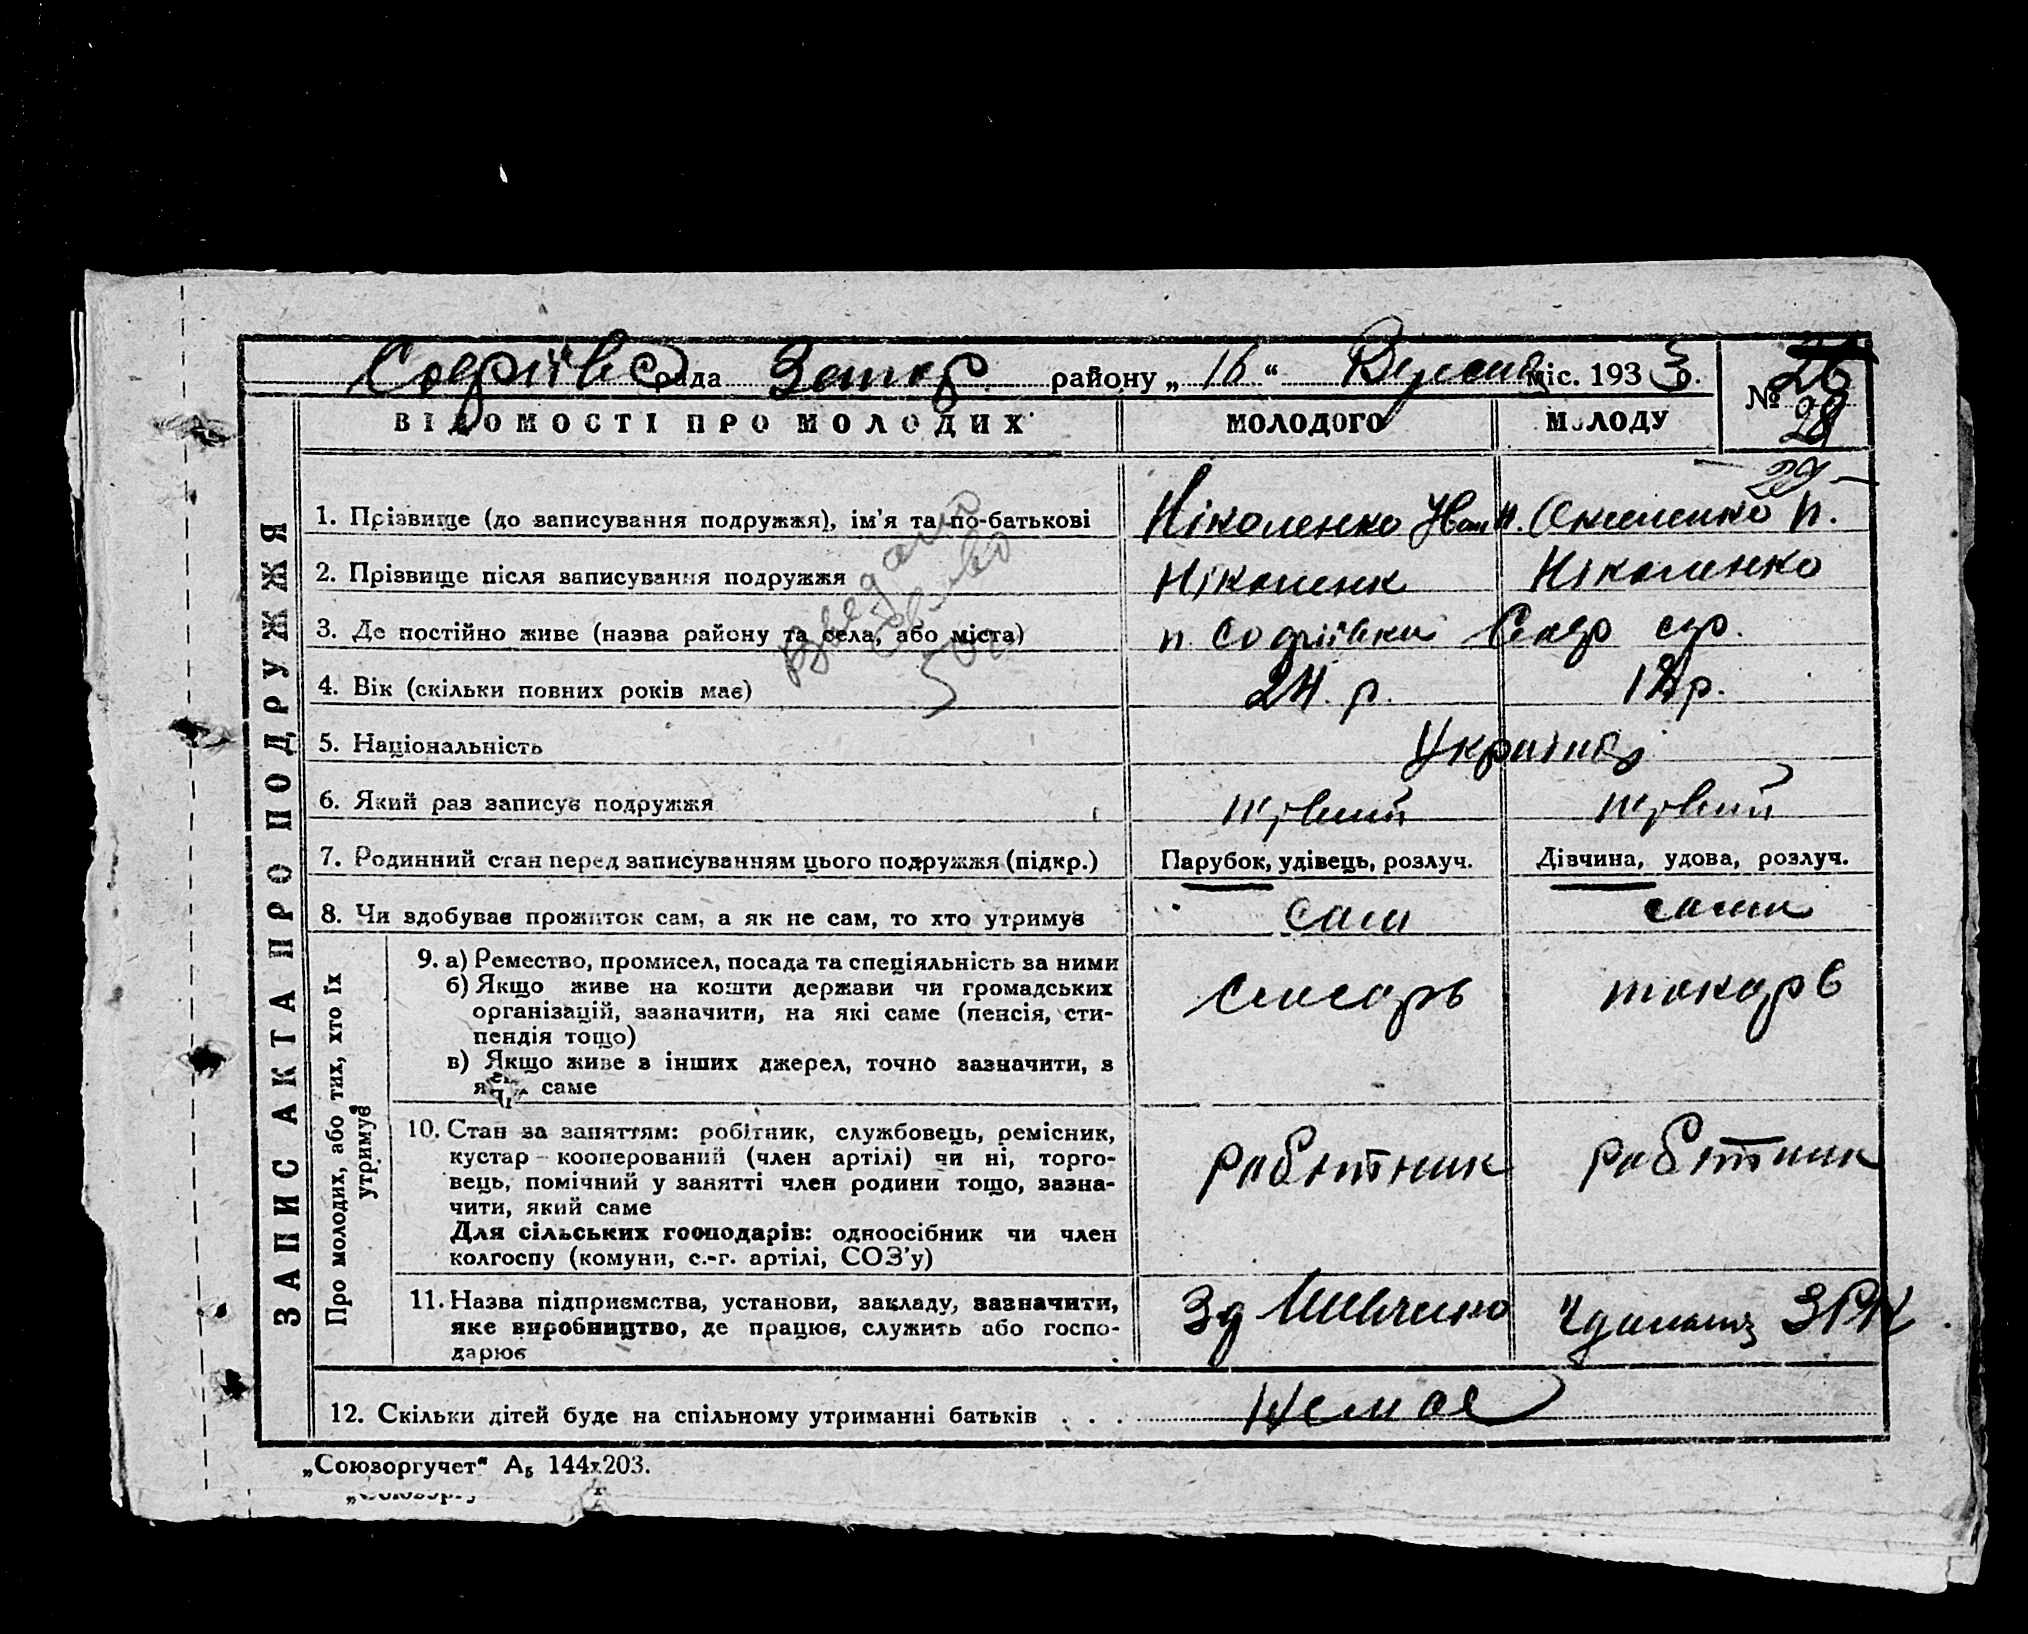 Софіївс рада Запор. району „ 16 “ Вересня міс. 1933 р.
№ 26
28
29
ВІДОМОСТІ ПРО МОЛОДИХ МОЛОДОГО МОЛОДУ
ЗАПИС АКТА ПРО ПОДРУЖЖЯ
1. Прізвище (до записування подружжя), ім'я та по-батькові Ніколенко Іван Н.
2. Прізвище після записування подружжя Ніколенк Ніколенко
3. Де постійно живе (назва району та села, або міста) п. Софіївка
4. Вік (скільки повних років має) 24. р.
5. Національність Українці
6. Який раз записує подружжя первий первий
7. Родинний стан перед записуванням цього подружжя (підкр.) Парубок, удівець, розлуч. Дівчина, удова, розлуч.
8. Чи здобуває прожиток сам, а як не сам, то хто утримує сам сама
Про молодих, або тих, хто їх утримує
9. а) Ремество, промисел, посада та спеціяльність за ними слюсарь токарь
б) Якщо живе на кошти держави чи громадських
організацій, зазначити, на які саме (пенсія, сти-
пендія тощо)
в) Якщо живе з інших джерел, точно зазначити, з
саме
10. Стан за заняттям: робітник, службовець, ремісник,
кустар - кооперований (член артілі) чи ні, торго-
вець, помічний у занятті член родини тощо, зазна-
чити, який саме робітник робітник
Для сільських господарів: одноосібник чи член
колгоспу (комуни, с.-г. артілі, СОЗ'у)
11. Назва підприємства, установи, закладу, зазначити,
яке виробництво, де працює, служить або госпо-
дарює Зд Шевченко ЗРК
12. Скільки дітей буде на спільному утриманні батьків . . . Немає
„Союзоргучет“ А₅ 144х203.